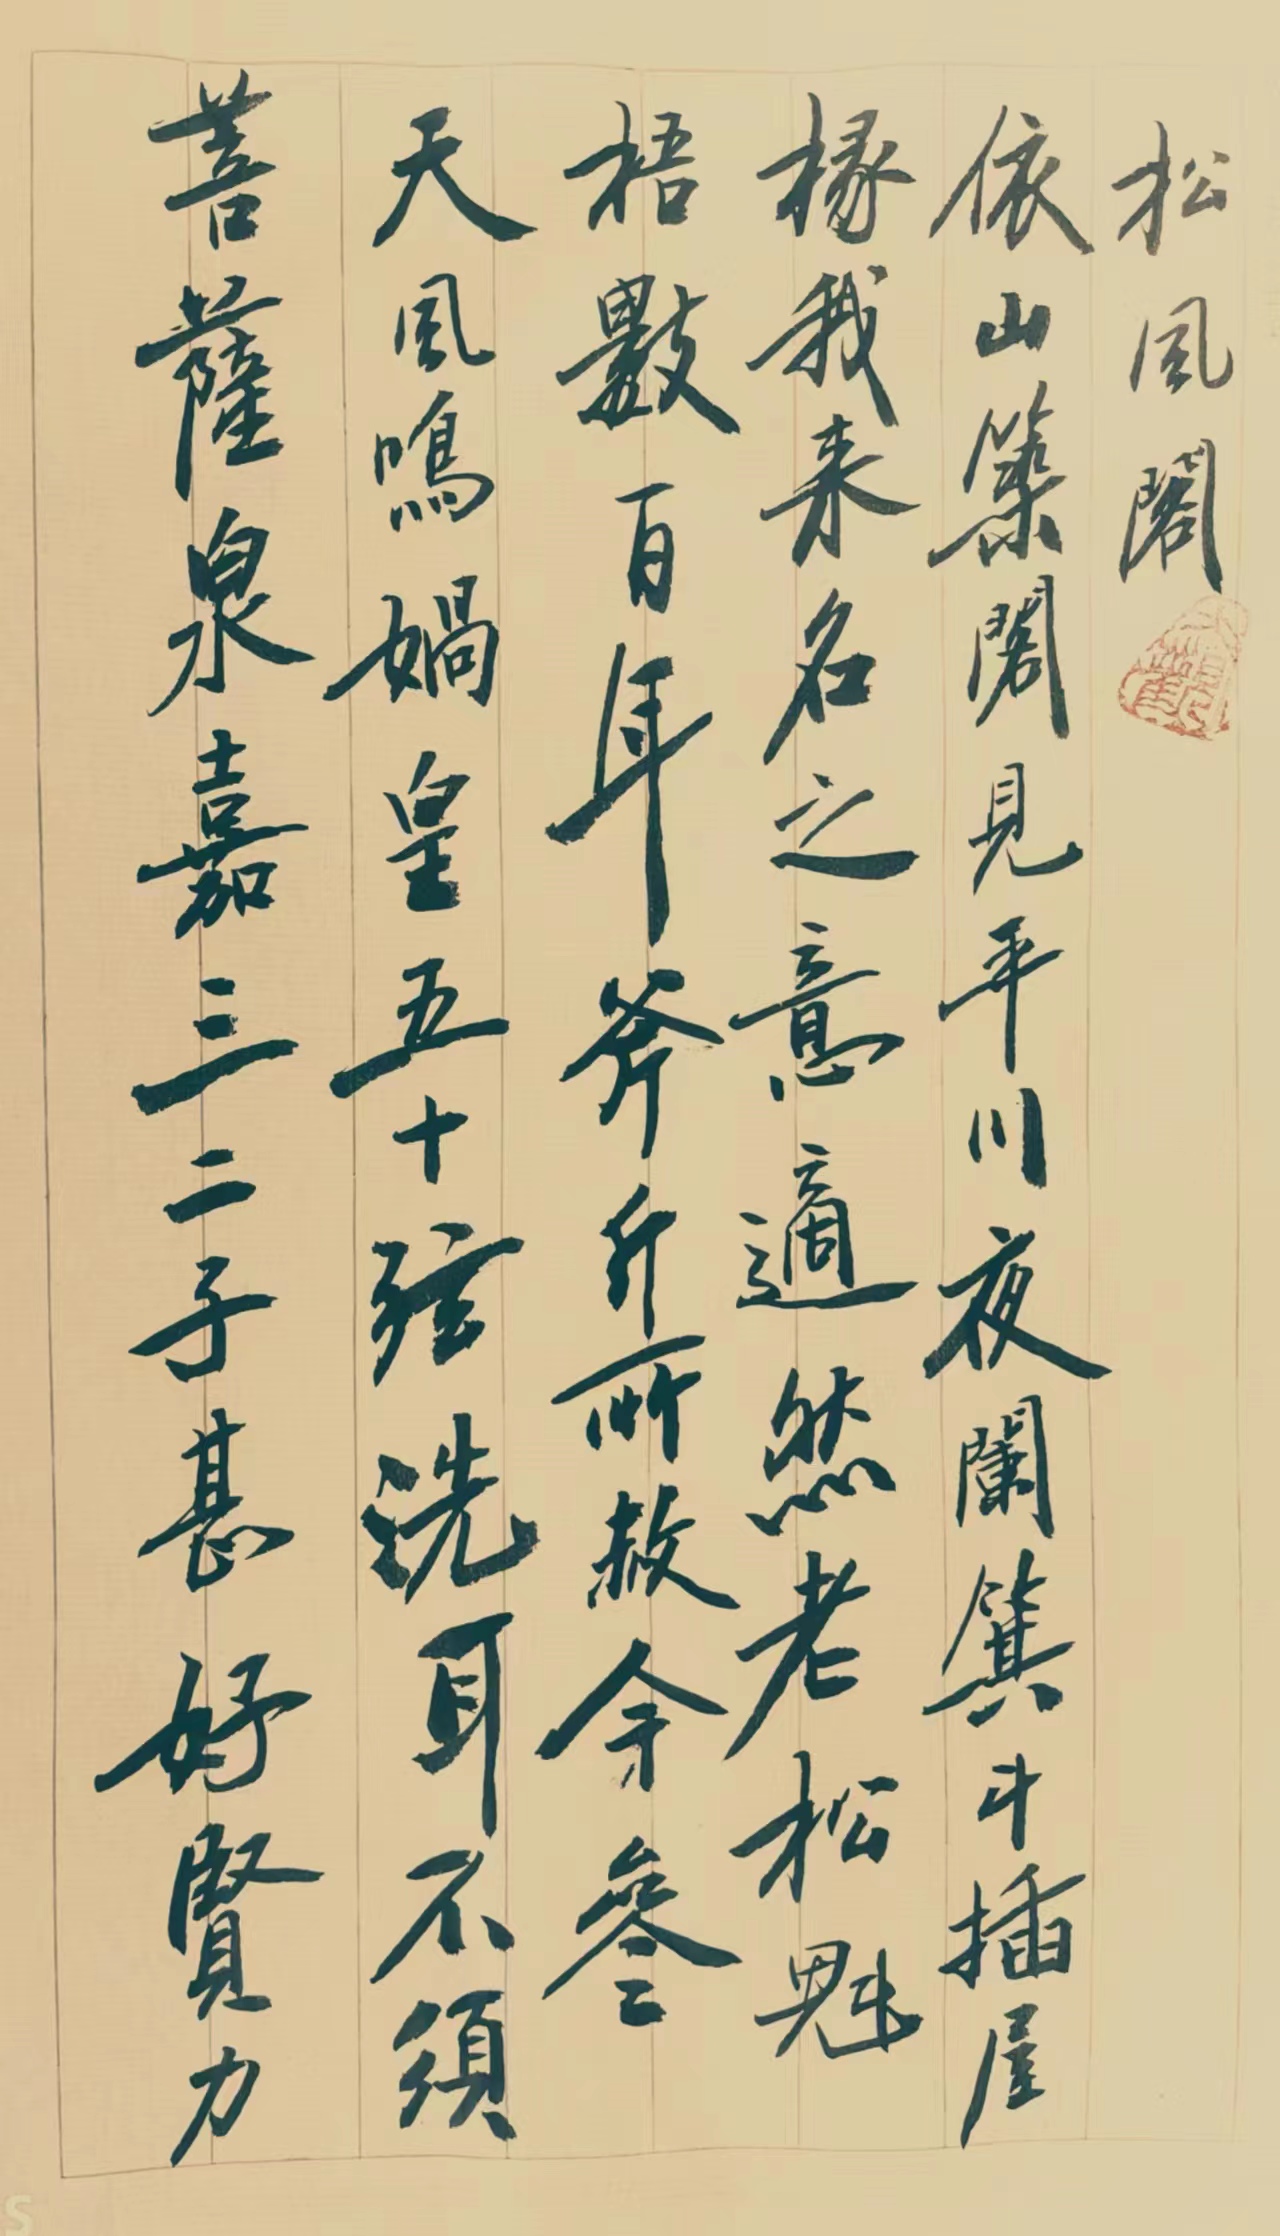 松風閣
依山築閣見平川夜闌箕斗插屋
椽我来名之意適然老松魁
梧數百年斧斤所赦今參
天風鳴媧皇五十弦洗耳不須
菩薩泉嘉三二子甚好賢力
S